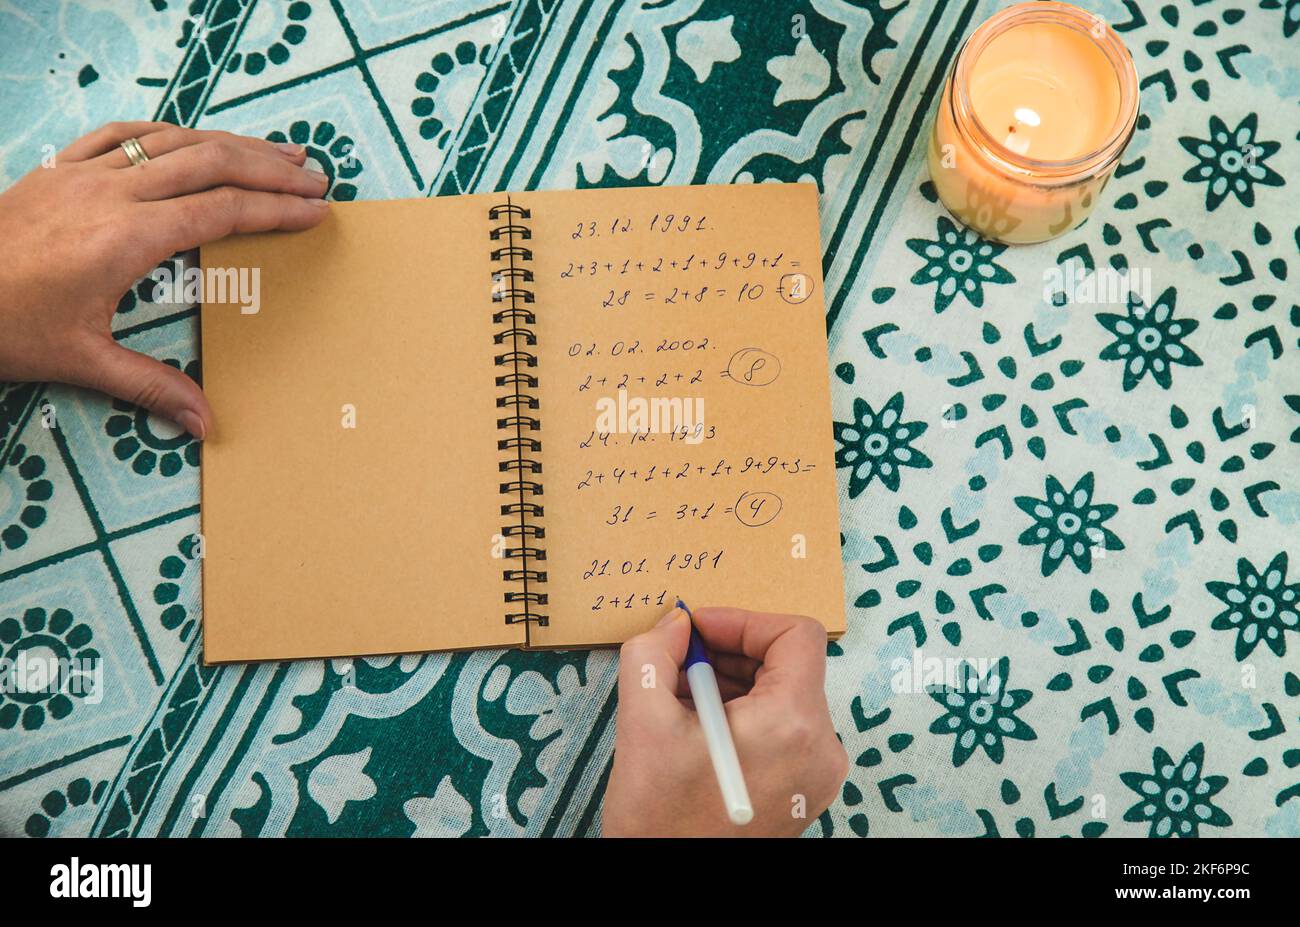 23.12.1991.
2+3+1+2+1+9+9+1=
28 = 2+8 = 10 = 1
02.02.2002.
2+2+2+2 = 8
24.12.1993
2+4+1+2+1+9+9+3=
31 = 3+1 = 4
21.01.1981
2+1+1
alamy
Image ID: 2KF6P9C
www.alamy.com